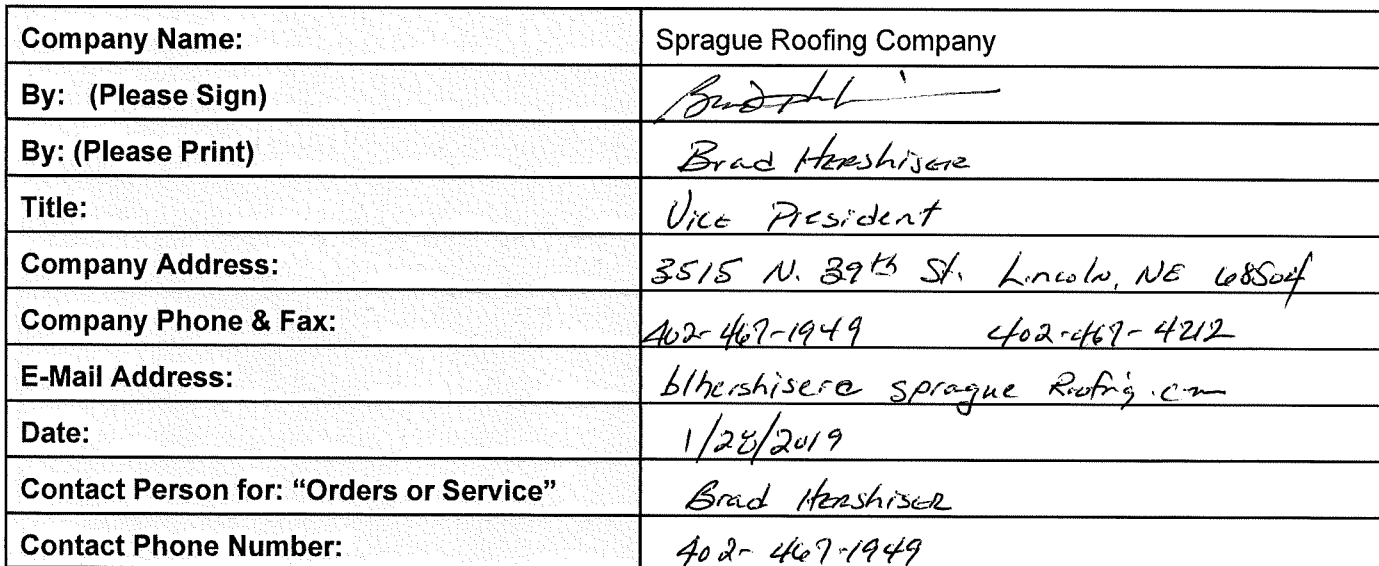 Company Name: Sprague Roofing Company
By: (Please Sign)
By: (Please Print) Brad Hershiser
Title: Vice President
Company Address: 3515 N. 39th St. Lincoln, NE 68504
Company Phone & Fax: 402-467-1949 402-467-4212
E-Mail Address: blhershiser@spragueRoofing.com
Date: 1/28/2019
Contact Person for: “Orders or Service” Brad Hershiser
Contact Phone Number: 402-467-1949